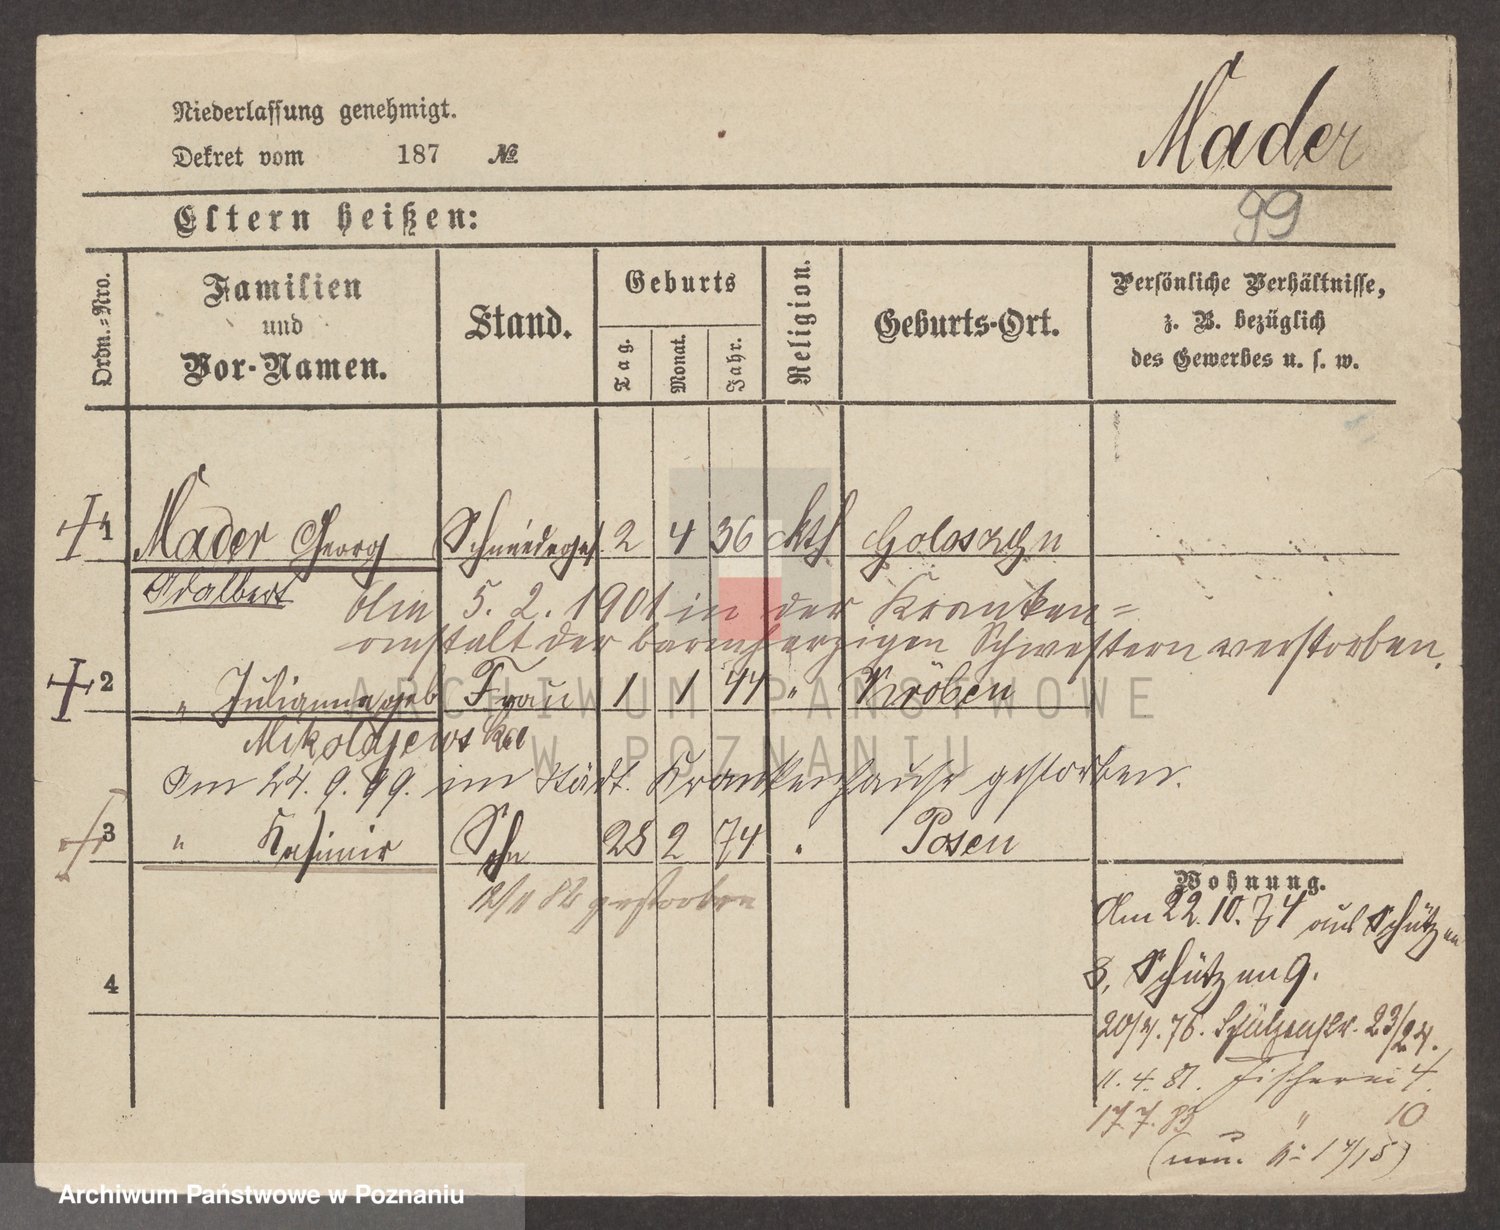 Niederlassung genehmigt.
Dekret vom 187 №
Mader
99
Eltern heißen:
Ordn.-Nro.
Familien
und
Vor-Namen.
Stand.
Geburts
Tag.
Monat.
Jahr.
Religion.
Geburts-Ort.
Persönliche Verhältnisse,
z. B. bezüglich
des Gewerbes u. s. w.
1 Mader Georg Schneiderges. 2 4 36 kth
Adalbert
Am 5. 2. 1901 in der Kranken=
anstalt der barmherzigen Schwestern verstorben.
2 " Julianna geb Frau 1 1 44 " Kröben
Mikolajewska
Am 24. 9. 99. im Städt. Krankenhause gestorben.
3 " Kasimir Sohn 28 2 74 " Posen
gestorben
4
Wohnung.
Am 22. 10. 74 aus Schützen
8, Schützen 9.
20/4. 76. Schützenstr. 23/24.
11. 4. 81. Fischerei 4.
17.7.83 " 10
ARCHIWUM PAŃSTWOWE
W POZNANIU
Archiwum Państwowe w Poznaniu